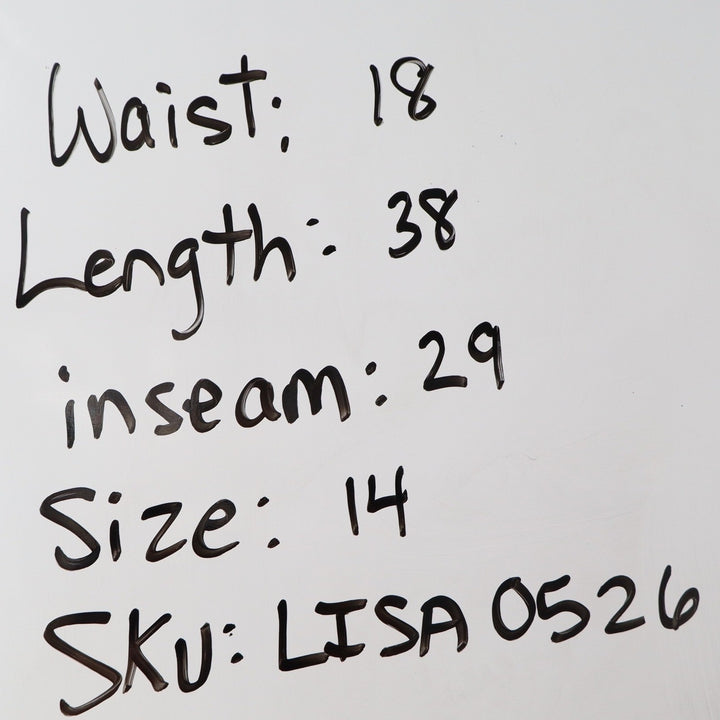 Waist: 18
Length: 38
inseam: 29
Size: 14
SKU: LISA 0526